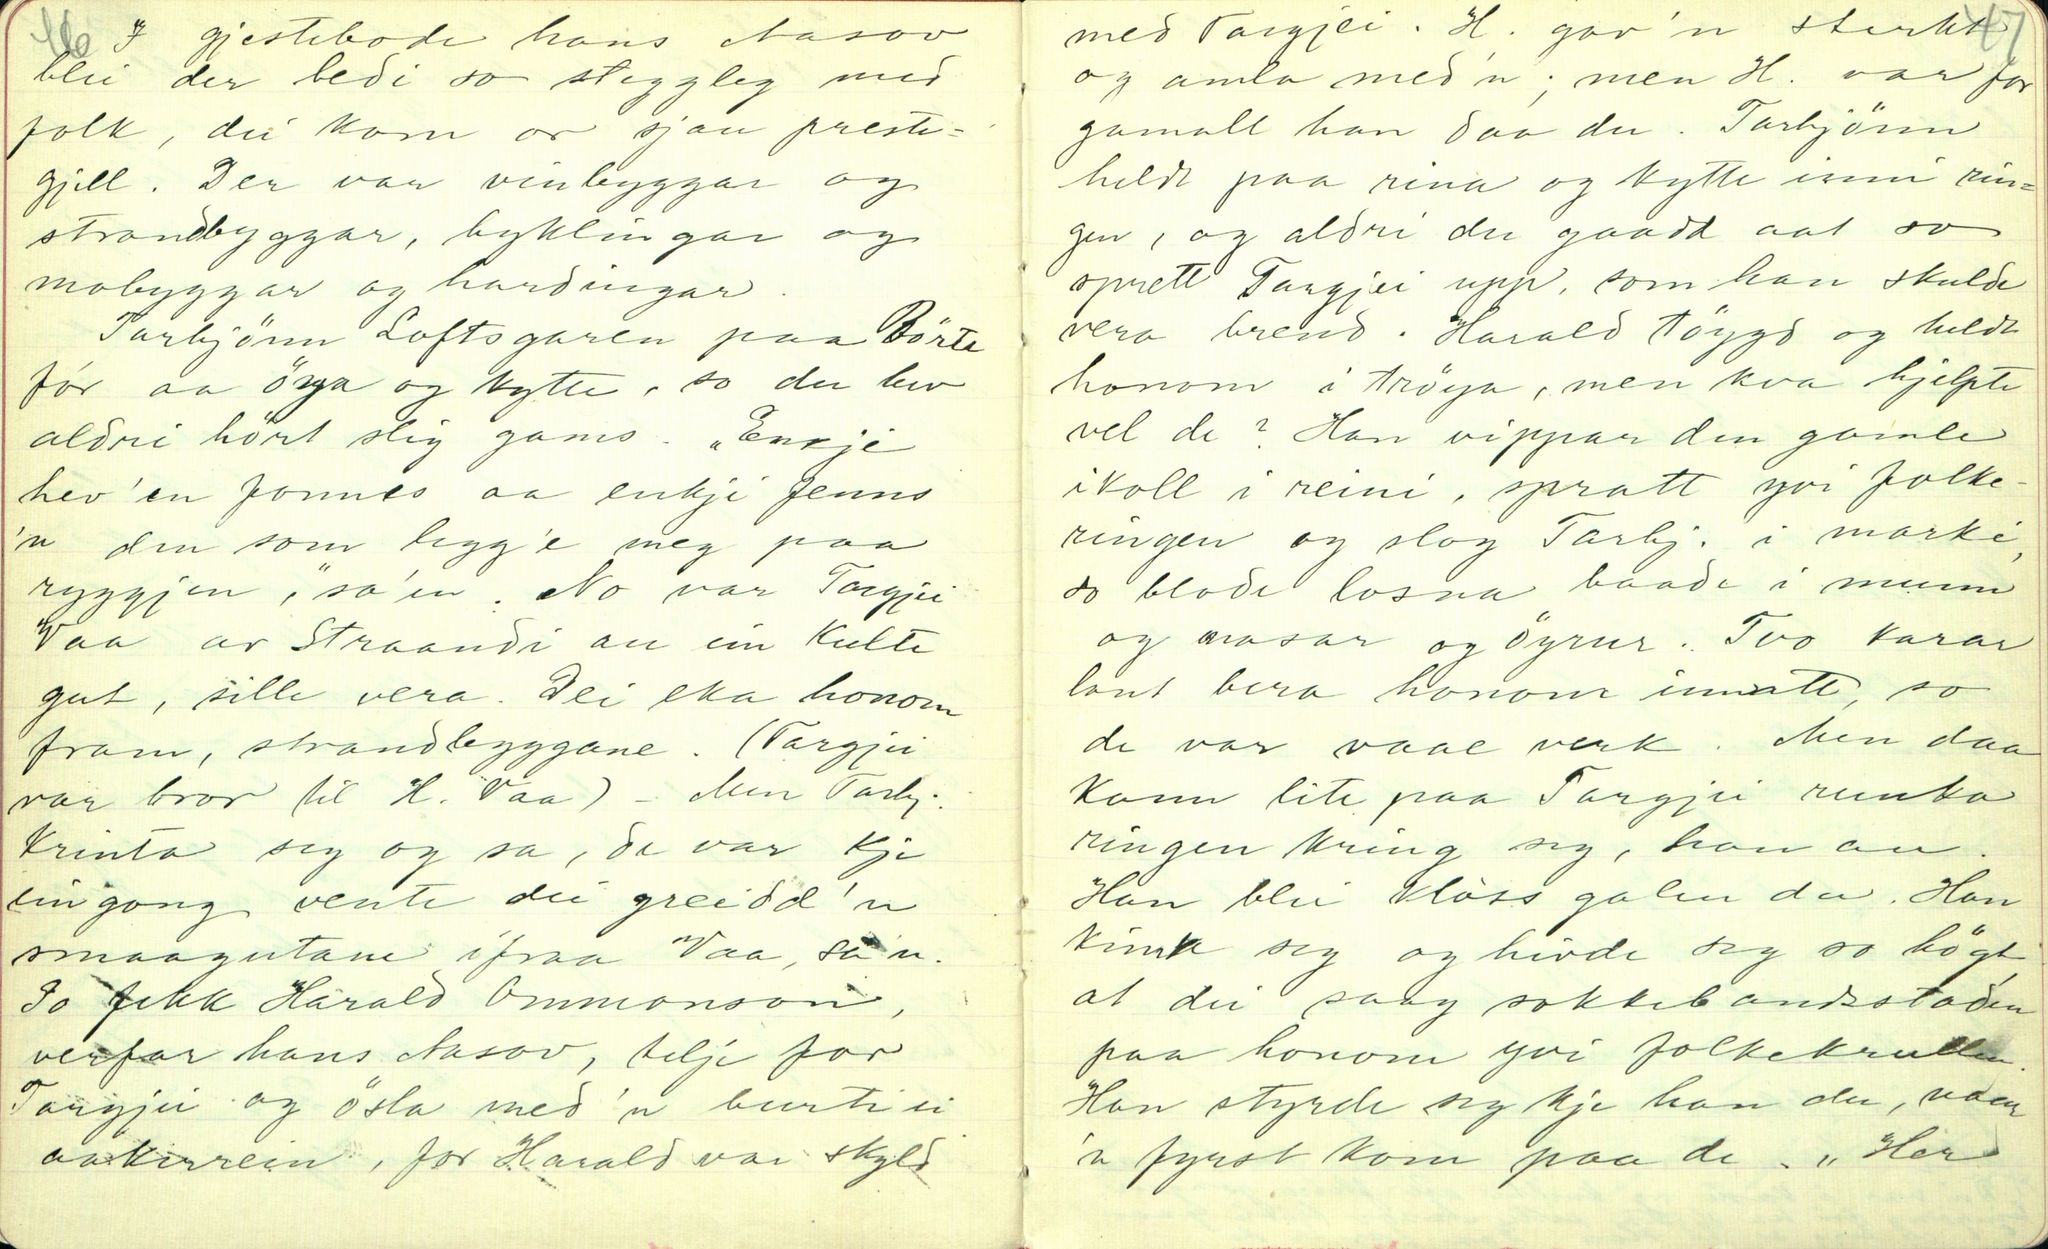 46
I gjestebode hans Aasov
blei der bedi so steggleg med
folk, dei kom or sjau preste-
gjell. Der var vinbyggar og
strandbyggar, byklingar og
mobyggar og hardingar.
Tarbjönn Loftsgaren paa Börte
fór aa öya og kytte, so du hev
aldri hört slig gams. "Enkje
hev'en fonnes aa enkji fenns
'n den som legg'e meg paa
ryggjen," sa'en. No var Targjei
Vaa av Straandi au ein kulte
gut, sille vera. Dei eka honom
fram, strandbyggane. (Targjei
var bror til H. Vaa) - Men Tarbj.
krinta seg og sa, de var kje
eingong vente dei greidd'n
smaagutane ifraa Vaa, sa'n.
So fekk Harald Ommonson,
verfar hans Aasov, telje for
Targjei og ösla med'n burti ei
aakerrein, for Harald var skyld
47
med Targjei. H. gav'n sterkt
og amla med'n; men H. var for
gamall han daa du. Tarbjönn
heldt paa rina og kytte inni rin-
gen, og aldri du gaadd aat so
sprett Targjei upp, som han skulde
vera brend. Harald töygd og heldt
honom i tröya, men kva hjelpte
vel de? Han vippar den gamle
ikoll i reini, spratt yvi folke-
ringen og slog Tarbj. i marki,
so blode losna baade i munn
og nasar og öyrur. Tvo karar
laut bera honom innatt, so
de var vaae verk. Men daa
kom lite paa Targjei runka
ringen kring seg, han au.
Han blei klöss galen da. Han
kinka seg og hivde seg so högt
at dei saag sokkebandsstaden
paa honom yvi folkekrullen.
Han styrde seg kje han du, naar
'n fyrst kom paa de. "Her